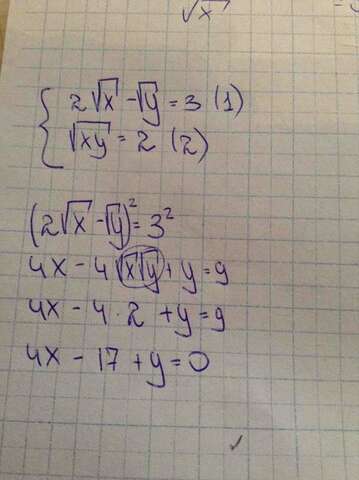 √x
2√x - √y = 3 (1)
√xy = 2 (2)
(2√x - √y)² = 3²
4x - 4√x√y + y = 9
4x - 4·2 + y = 9
4x - 17 + y = 0